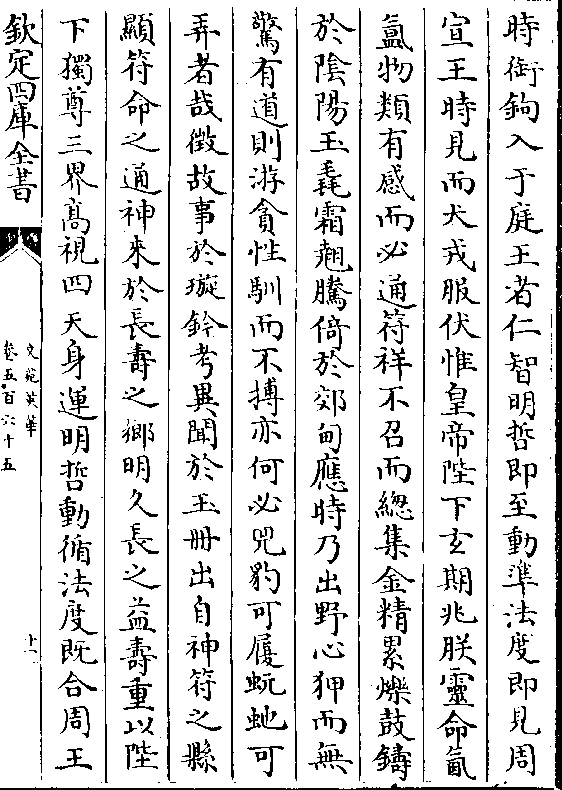 時銜鉤入于庭王者仁智明哲即至動準法度即見周
宣王時見而犬戎服伏惟皇帝陛下玄期兆朕靈命氤
氳物類有感而必通符祥不召而總集金精累爍鼓鑄
於陰陽玉毳霜翹騰倚於郊甸應時乃出野心狎而無
驚有道則游貪性馴而不搏亦何必兕豹可履蚖虵可
弄者哉徴故事於璇鈐考異聞於玉冊出自神符之縣
顯符命之通神來於長壽之郷明久長之益壽重以陛
下獨尊三界髙視四天身運明哲動循法度既合周王
欽定四庫全書
文苑英華
卷五百六十五
十一